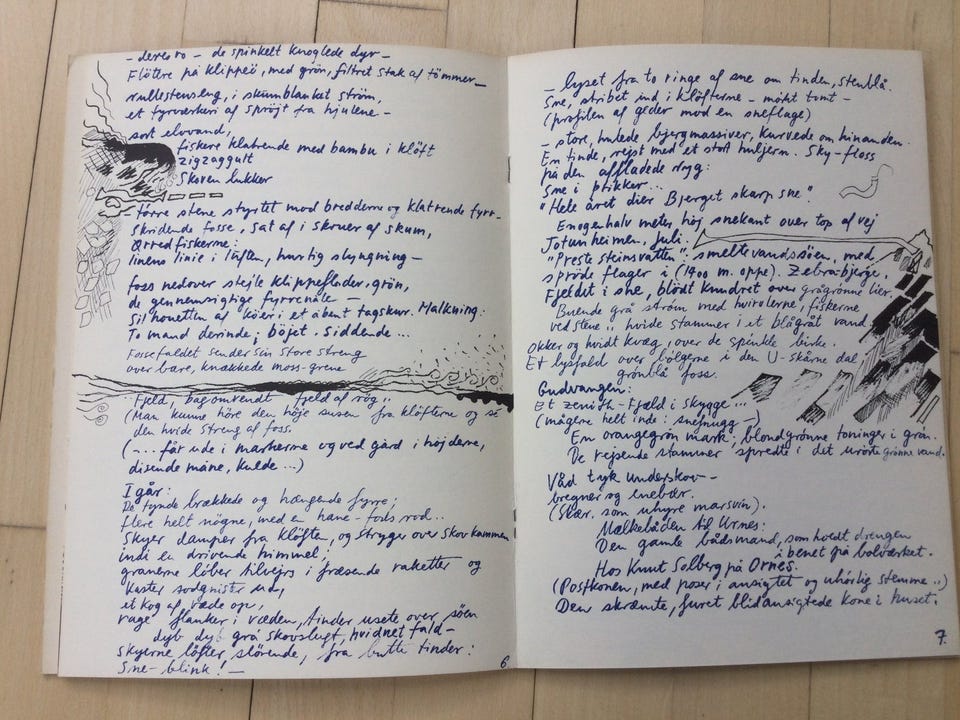 – deres ro – de spinkelt knoglede dyr –
Flötere på klippeö, med grön, filtret stak af tömmer –
rullestenseng, i skumblanket ström,
et fyrværkeri af spröjt fra hjulene –
sort elvvand,
fiskere klatrende med bambu i klöft
zigzaggult
Skoven lukker
större stene styrtet mod bredderne og klatrende fyrr –
Skridende fosse, sat af i skruer af skum,
Örredfiskerne:
linens linie i luften, hurtig slyngning –
foss nedover stejle klippeflader, grön,
de gennemsigtige fyrrenåle –
Silhouetten af köer i et åbent tagskur. Malkning:
To mand derinde; böjet. Siddende...
Fossefaldet sender sin store streng
over bare, knækkede mos-grene
"Fjeld bag omvendt fjeld af røg"..
(Man kunne höre den höje susen fra klöfterne og se
den hvide streng af foss.
(–... får ude i markerne og ved gård i höjderne,
disende måne, kulde...)
I går:
De tynde brækkede og hængende fyrre;
flere helt nögne, med en hane-fods rod...
Skyer damper fra klöften, og stryger over skovkammen
ind i en drivende himmel;
granerne löber tilvejrs i fræsende raketter og
kaster sodgnister ud,
et kog af væde op,
vage flanker i væden, tinder usete over söen
dyb dyb grå skovslugt, hvidnet fald –
skyerne löfter slörende, fra butte tinder:
Sne-blink! –
6.
– lyset fra to ringe af sne om tinden, stenblå.
Sne, stribet ind i klöfterne – mökt tomt –
(profilen af geder mod en sneflage)
– store, hulede bjergmassiver, kurvede om hinanden.
En tinde, rejst med et stort huljern. Sky-floss
på den affladede ryg:
Sne i prikker...
"Hele året dier Bjerget skarp sne".
Enogenhalv meter höj snekant over top af vej
Jotunheimen, Juli.
"Prestesteinsvatten": smeltevandssöen, med
spröde flager i (1400 m. oppe). Zebrabjerge.
Fjeldet i sne, blödt rundret over grågrönne lier.
Buende grå ström med hvirvlerne, fiskerne
ved stene.. hvide stammer i et blågråt vand.
Okker og hvidt kvæg, over de spinkle birke.
Et lysfald over bölgerne i den U-skårne dal,
grönblå foss.
Gudvangen:
Et zenith-Fjæld i skygge...
(mågerne helt inde: snefnugg –)
En orangegrön mark; blondgrönne toninger i grån.
De rejsende stammer spredte i det urörte grönne vand.
Våd tyk underskov –
bregner og enebær.
(Skær, som uhyre marsvin).
Mælkebåden til Urnes:
Den gamle bådsmand, som holdt drengen
i benet på bolværket.
Hos Knut Solberg på Ornes.
(Postkonen, med poser i ansigtet og uhörlig stemme..)
Den skræmte, furet blidansigtede kone i huset.
7.